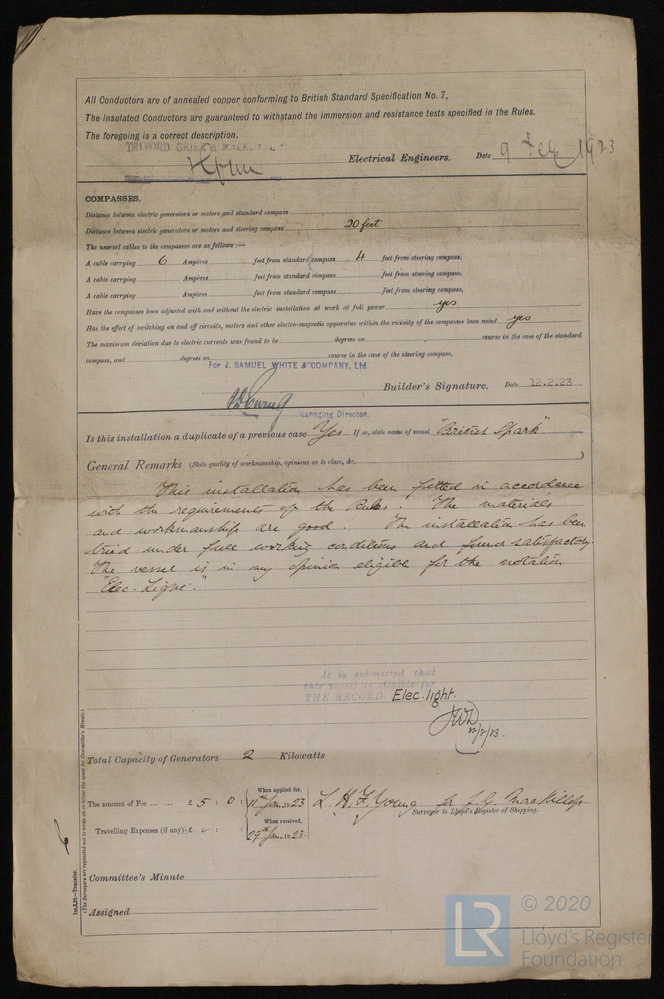 All Conductors are of annealed copper conforming to British Standard Specification No. 7,
The Insulated Conductors are guaranteed to withstand the immersion and resistance tests specified in the Rules.
The foregoing is a correct description.
TELFORD
Electrical Engineers. Date 9 Feb 1923
COMPASSES.
Distance between electric generators or motors and standard compass
Distance between electric generators or motors and steering compass 20 feet
The nearest cables to the compasses are as follows:—
A cable carrying 6 Ampères feet from standard compass 4 feet from steering compass.
A cable carrying Ampères feet from standard compass feet from steering compass.
A cable carrying Ampères feet from standard compass feet from steering compass.
Have the compasses been adjusted with and without the electric installation at work at full power yes
Has the effect of switching on and off circuits, motors and other electro-magnetic apparatus within the vicinity of the compasses been noted yes
The maximum deviation due to electric currents was found to be degrees on course in the case of the standard
compass, and degrees on course in the case of the steering compass.
For J. SAMUEL WHITE & COMPANY, Ltd
Builder's Signature. Date 12.2.23
Managing Director.
Is this installation a duplicate of a previous case Yes If so, state name of vessel "British Spark"
General Remarks (State quality of workmanship, opinions as to class, &c.
This installation has been fitted in accordance
with the requirements of the Rules. The materials
and workmanship are good. The installation has been
tried under full working conditions and found satisfactory.
The vessel is in my opinion eligible for the notation
"Elec. Light."
It is submitted that
this vessel is eligible for
THE RECORD. Elec. light.
JWD
12/2/23
Total Capacity of Generators 2 Kilowatts
The amount of Fee ... ... £ 5 : 0 : When applied for, 11th Jan. 1923
L. H. F. Young for
Surveyor to Lloyd's Register of Shipping.
Travelling Expenses (if any) £ : : When received, 29th Jan. 1923
Committee's Minute
Assigned
1m.5.22—Transfer.
(The Surveyors are requested not to write on or below the space for Committee's Minute.)
LR © 2020
Lloyd's Register
Foundation